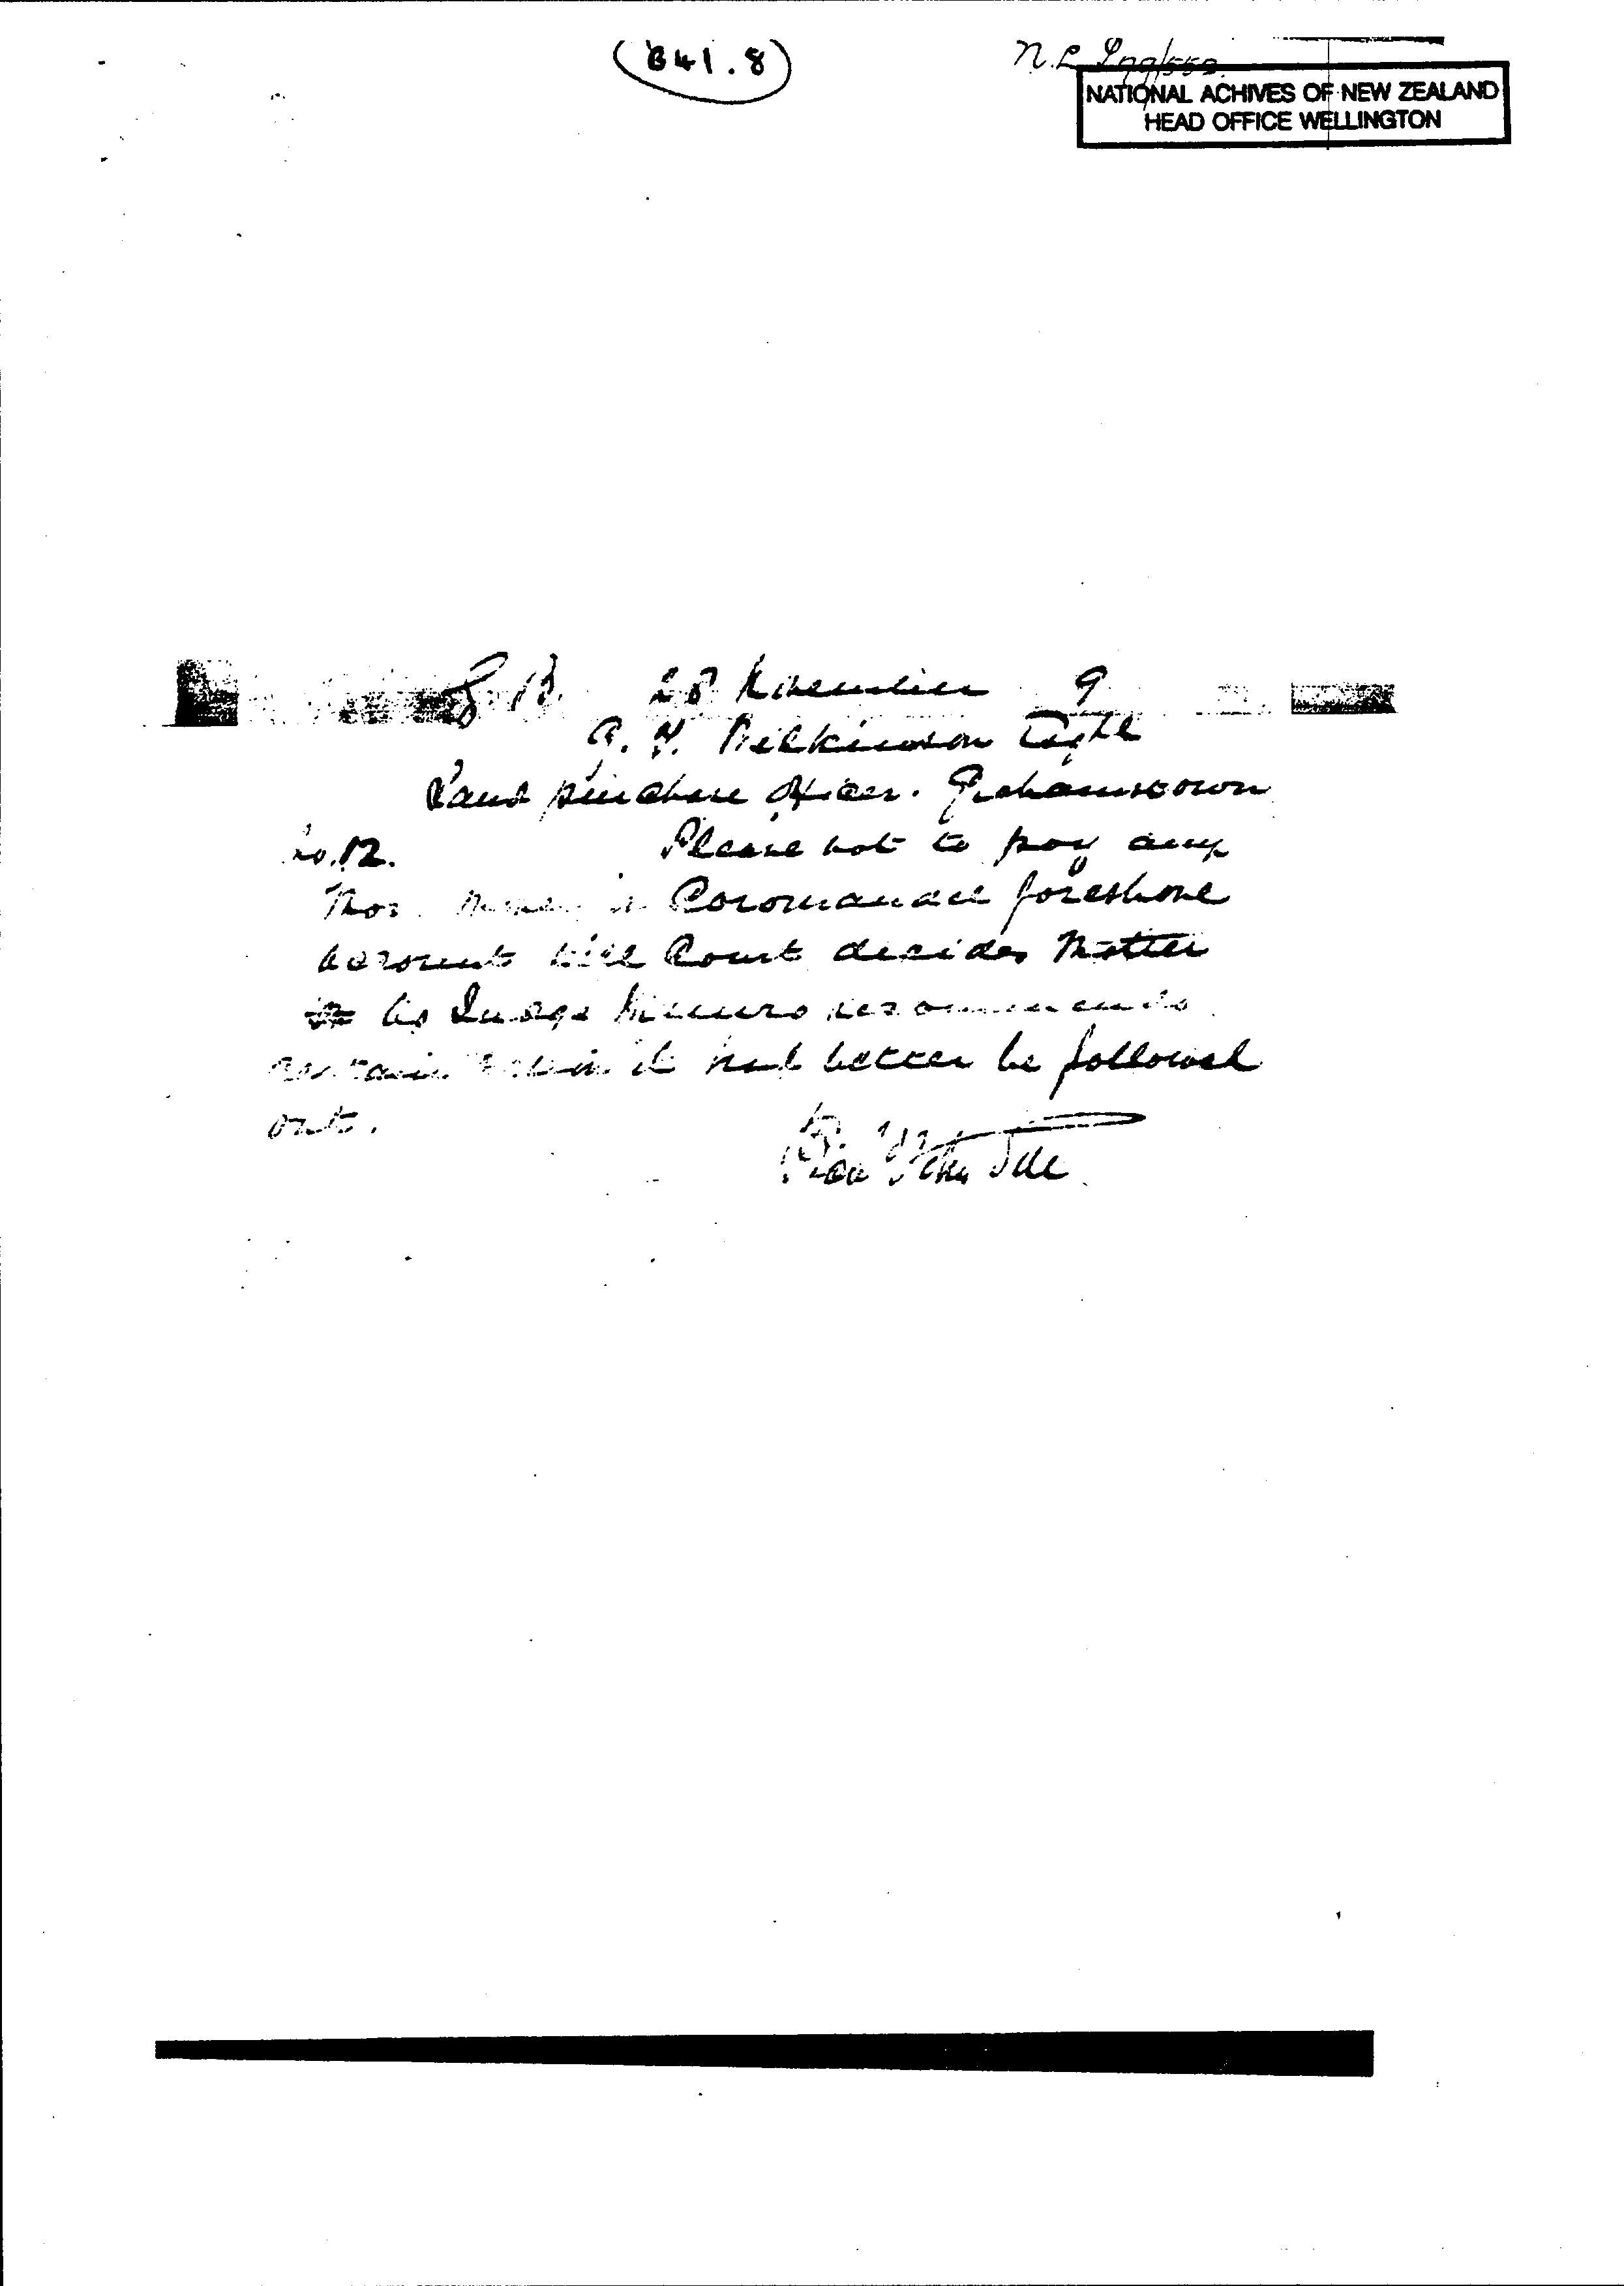 (841.8)
NATIONAL ACHIVES OF NEW ZEALAND
HEAD OFFICE WELLINGTON
28 November 9
Wilkinson
Land purchase officer. Grahamstown
No.12. Please not to pay any
money in Coromandel foreshore
account till Court decides matter
As Judge recommends
certain action it had better be followed
out.